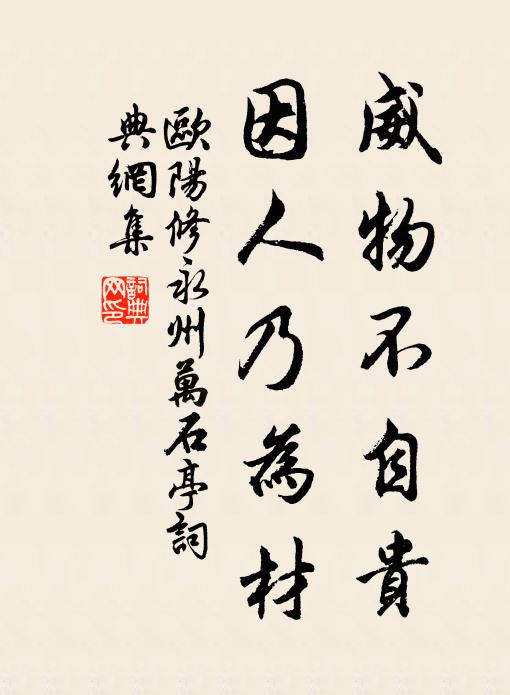 威物不自貴
因人乃為材
歐陽修永州萬石亭詞
典網集
詞典
网印